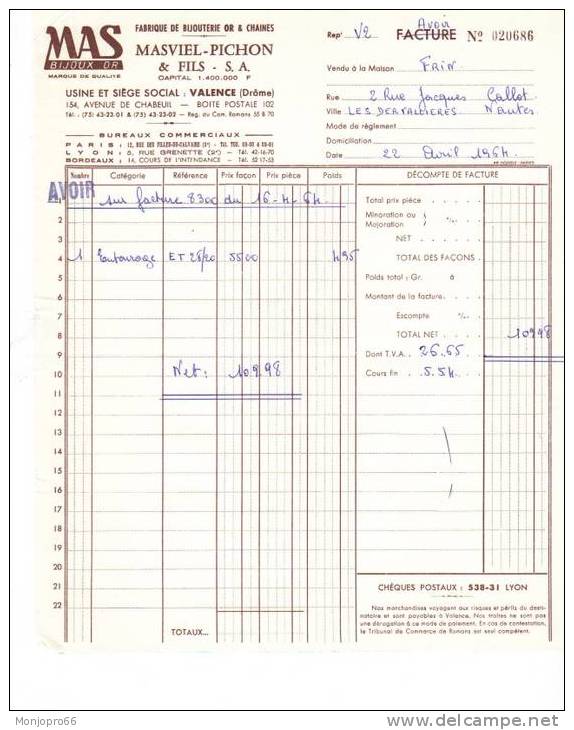 MAS
BIJOUX OR
MARQUE DE QUALITÉ
FABRIQUE DE BIJOUTERIE OR & CHAINES
MASVIEL-PICHON
& FILS - S. A.
CAPITAL 1.400.000 F
USINE ET SIÈGE SOCIAL : VALENCE (Drôme)
154, AVENUE DE CHABEUIL — BOITE POSTALE 102
Tél. : (75) 43-22-01 & (75) 43-23-02 — Reg. du Com. Romans 55 B 70
BUREAUX COMMERCIAUX
PARIS : 12, RUE DES FILLES-DU-CALVAIRE (3e)
LYON : 5, RUE GRENETTE (2e) — TÉL. 42-16-70
BORDEAUX : 14, COURS DE L'INTENDANCE — TÉL. 52-17-53
Rep' V2
Avoir
FACTURE No 020686
Vendu à la Maison FRIN
Rue 2 Rue Jacques Callot
Ville LES DERVALLIERES Nantes
Mode de règlement
Domiciliation
Date 22 Avril 1964
Nombre Catégorie Référence Prix façon Prix pièce Poids DÉCOMPTE DE FACTURE
AVOIR
1 sur facture 8300 du 16-4-64 Total prix pièce
2 Minoration ou
Majoration
3 NET
4 1 Entourage ET 28/20 5500 495 TOTAL DES FAÇONS
5 Poids total : Gr. à
6 Montant de la facture
7 Escompte
8 TOTAL NET 10998
9 Dont T.V.A. 26.65
10 Net : 109.98 Cours fin 5.54
11
12
13
14
15
16
17
18
19
20
21 CHÈQUES POSTAUX : 538-31 LYON
22 Nos marchandises voyagent aux risques et périls du desti-
nataire et sont payables à Valence. Nos traites ne sont pas
une dérogation à ce mode de paiement. En cas de contestation,
TOTAUX... le Tribunal de Commerce de Romans est seul compétent.
Monjopro66
delcampe.net